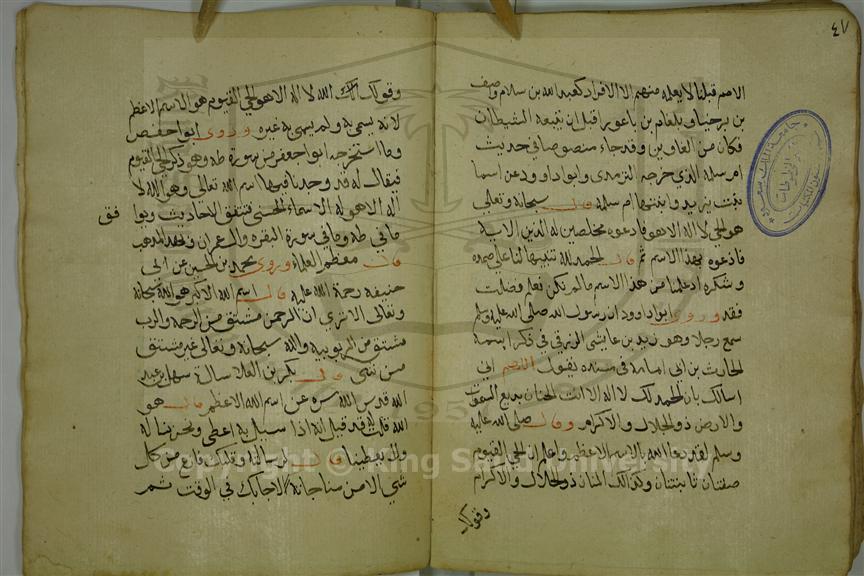 ٤٧
الامم قبلنا لا يعلمه منهم الا الافراد كعبد الله بن سلام واصف
بن برخيا وبلعام بن باعورا قبل ان يتبعه الشيطان
فكان من الغاوين وقد جاء منصوصا في حديث
ام سلمه الذي خرجه الترمذي وابو داوود عن اسما
بنت يزيد وام سلمه قال سبحانه وتعالى
هو الحي لا اله الا هو فادعوه مخلصين له الدين الاية
فادعوه بهذا الاسم ثم قال الحمد لله تنبيها لنا على حمده
وشكره اذ علمنا من هذ الاسم ما لم نكن نعلم
فقد وروى ابو داود ان رسول الله صلى الله عليه وسلم
سمع رجلا وهو زيد بن في ذكر اسمه
الحارث بن ابي اسامه في مسنده يقول اللهم اني
اسالك بان الحمد لك لا اله الا انت الحنان بديع السموات
والارض ذو الجلال والاكرام وقال صلى الله عليه
وسلم لقد دعا الله بالاسم الاعظم واعلم ان الحي القيوم
صفتان ثابتتان وكذالك المنان ذو الجلال والاكرام
وقولك
وقولك الله لا اله الا هو الحي القيوم هو الاسم الاعظم
لانه يسمى به ولم يسمى به غيره وروى ابو احفص
وما استخرجه ابوا جعفر من سورة طه وهو ذكر الحي القيوم
فيقال له قد وجدنا فيها اسم الله تعالى وهو الله لا
اله الا هو له الاسماء الحسنى فتتفق الاحاديث ويوا
فق
ما في طه وما في سورة البقره وال عمران و المذهب
قال معظم العلماء وروى محمد بن الحسن عن ابي
حنيفه رحمة الله عليه قال اسم الله الاكبر هو الله سبحانه
وتعالى الا ترى ان الرحمن مشتق من الرحمه والرب
مشتق من الربوبيه والله سبحانه وتعالى غير مشتق
من شي قال بكر بن العلا سالت سهل بن عبد
الله قدس الله سره عن اسم الله الاعظم قال هو
الله قلت له قد قيل انه اذا سيل به اعطى ونحن به
ولم يعطينا قال لم سالته وقلبك فارغ من كل
شي الا من مناجاته لاجابك في الوقت ثم
Copyright © King Saud University